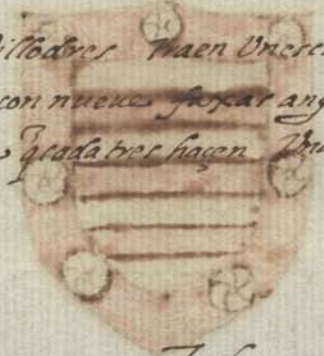 illodres traen Vnesc
con nueve faxas ang
q̃ cada tres haçen Vna